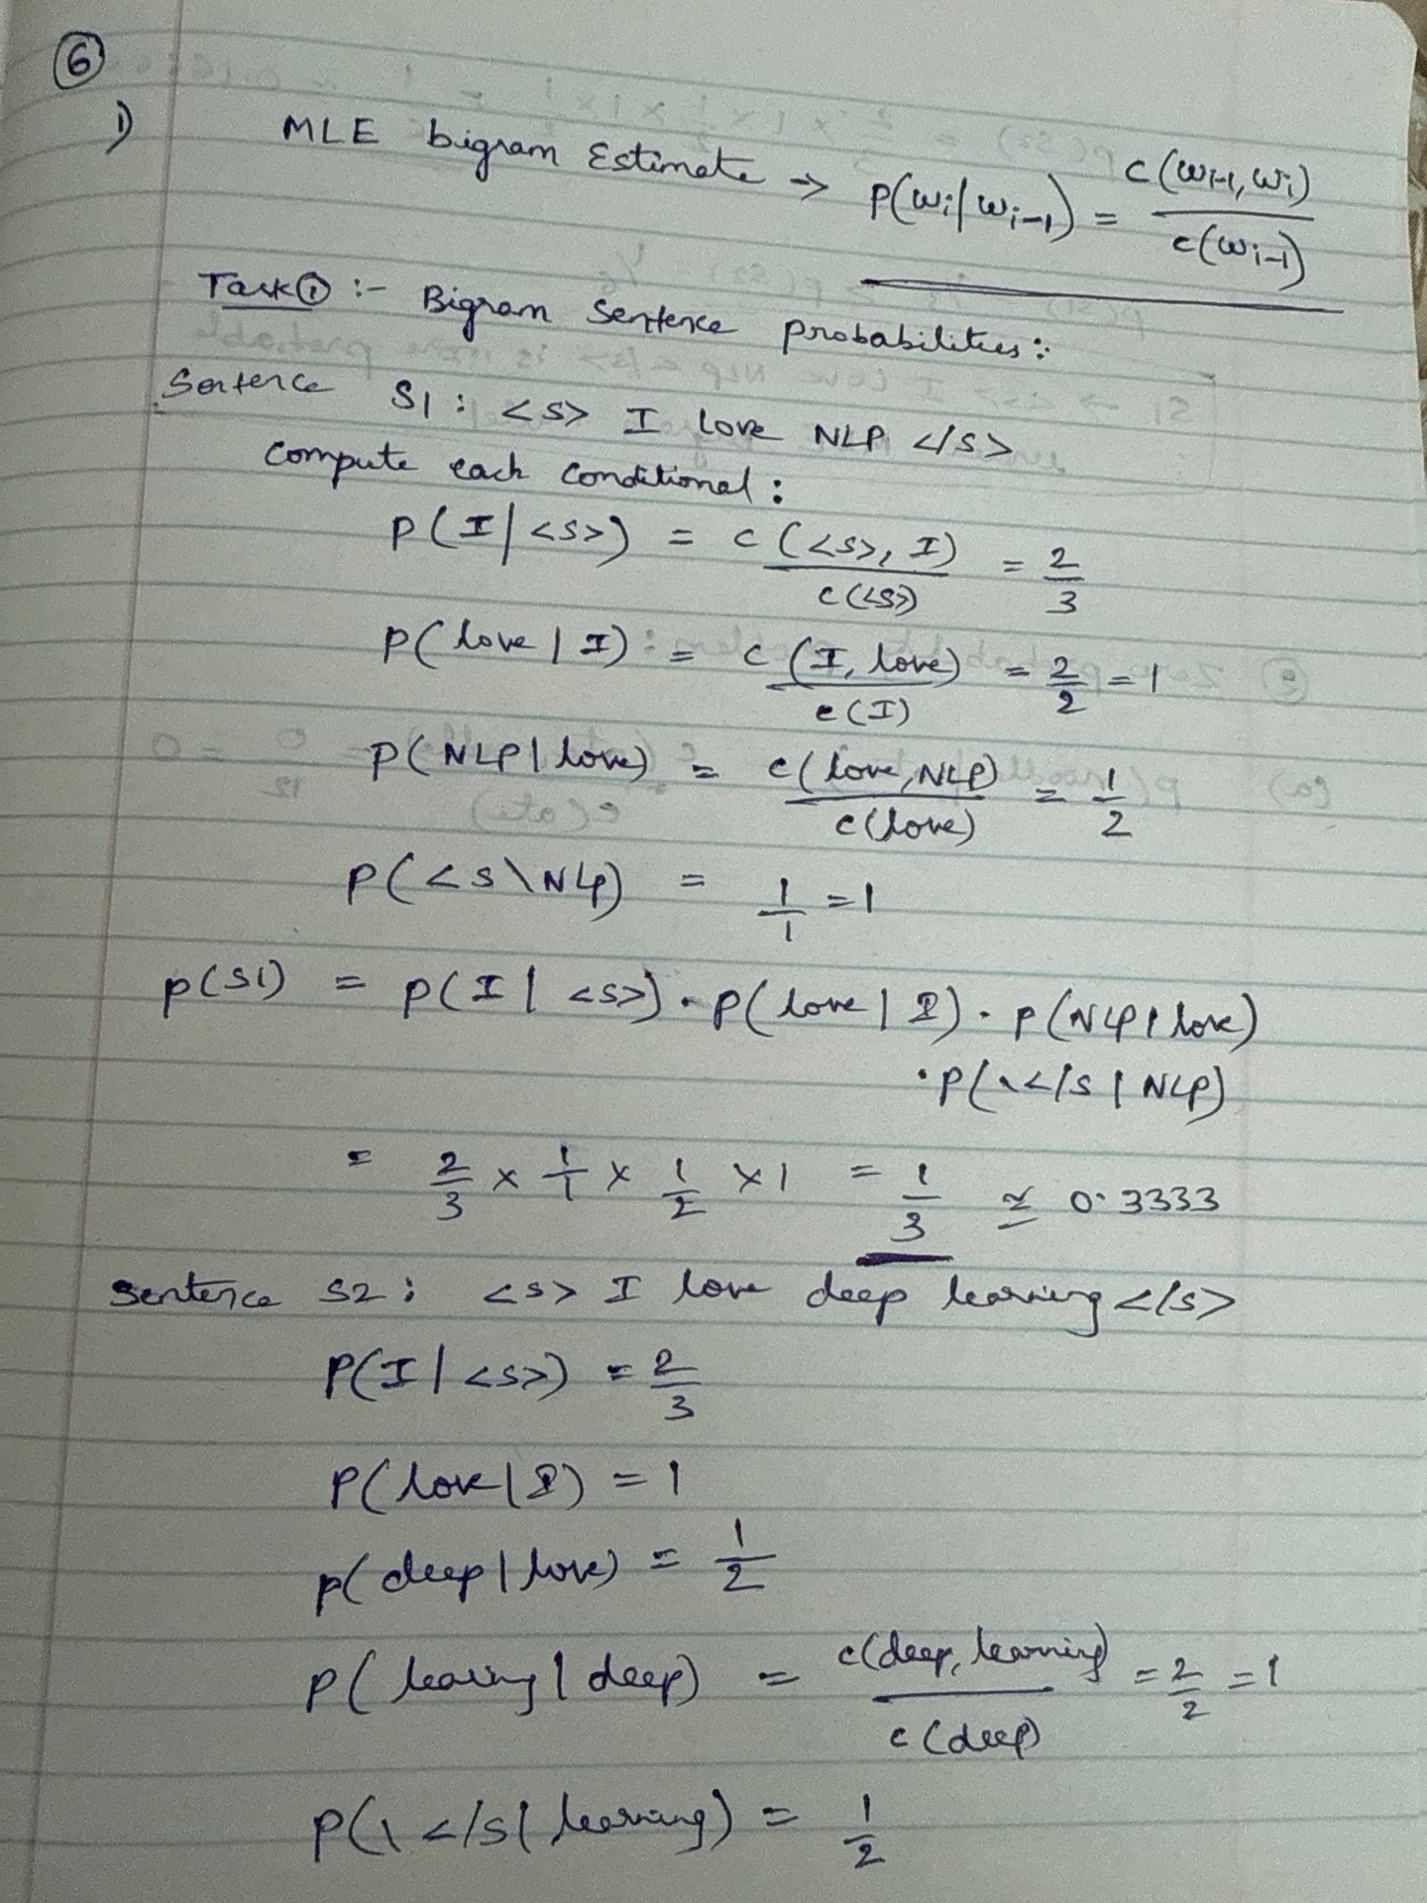 6
1) MLE bigram Estimate → P(wi|wi-1) = c(wi-1, wi) / c(wi-1)
Task① :- Bigram Sentence probabilities :
Sentence S1 : <s> I love NLP </s>
compute each conditional :
P(I|<s>) = c(<s>, I) / c(<s>) = 2/3
P(love|I) = c(I, love) / c(I) = 2/2 = 1
P(NLP|love) = c(love, NLP) / c(love) = 1/2
P(<s\NLP) = 1/1 = 1
P(S1) = P(I|<s>) . P(love|I) . P(NLP|love)
. P(\</s|NLP)
= 2/3 x 1/1 x 1/2 x 1 = 1/3 ≃ 0.3333
Sentence S2 : <s> I love deep learning </s>
P(I|<s>) = 2/3
P(love|I) = 1
P(deep|love) = 1/2
P(learing|deep) = c(deep, learning) / c(deep) = 2/2 = 1
P(\</s|learning) = 1/2